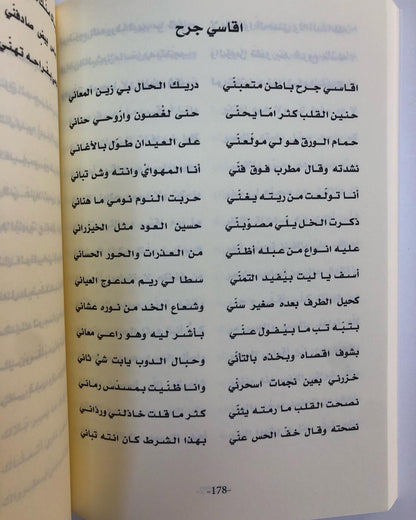 صادقني
تهنّي
اقاسي جرح
اقاسي جرح باطن متعبنّي دريك الحال بي زين المعاني
حنين القلب كثر امّا يحنّى حنى لغصون وازوحي حناني
حمام الورق هو لي مولّعنّي على العيدان طوّل بالأغاني
نشدته وقال مطرب فوق فنّي أنا المهواي وانته وش تباني
أنا تولّعت من ريته يغنّي حربت النوم نومي ما هناني
ذكرت الخل يلّي مصوّبنّي حسين العود مثل الخيزراني
عليه انواع من عبله أظنّي من العذرات والحور الحساني
أسف يا ليت بيْفيد التمنّي سطا لي ريم مدعوج العياني
كحيل الطرف بعده صغير سنّي وشعاع الخد من نوره عشاني
بتبّه تب ما بيْفول عنّي بأشّر ليه وهو راعي معاني
بشوف اقصاه وبخذه بالتأنّي وحبال الدوب يابت شيّ ثاني
خزرني بعين نجمات اسحرني وانا ظنّيت بمسدّس رماني
نصحت القلب ما رمته يثنّي كثر ما قلت خاذلني ورذاني
نصحته وقال خفّ الحس عنّي بهذا الشرط كان انته تباني
-178-